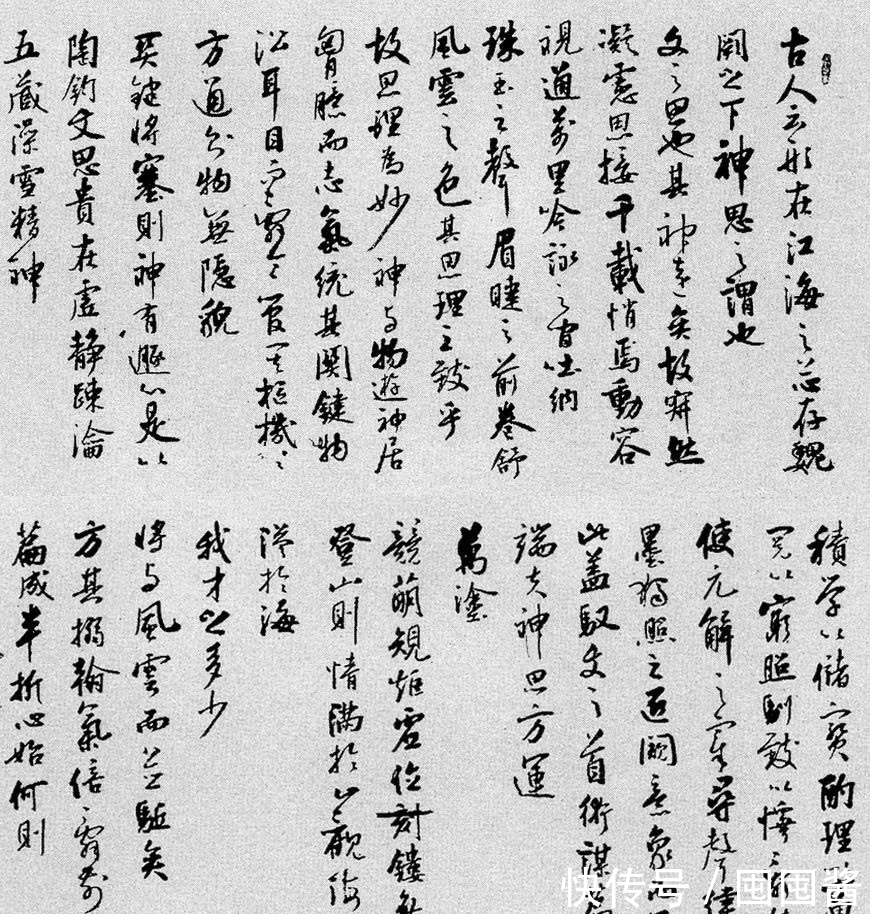 古人云形在江海之上心存魏
闕之下神思之謂也
文之思也其神遠矣故寂然
凝慮思接千載悄焉動容
視通萬里吟詠之間吐納
珠玉之聲眉睫之前卷舒
風雲之色其思理之致乎
故思理為妙神与物遊神居
胸臆而志氣統其關鍵物
沿耳目而辭令管其樞機樞機
方通則物無隱貌
關鍵將塞則神有遯心是以
陶鈞文思貴在虛靜疏瀹
五藏澡雪精神
積學以儲寶酌理
研閱以窮照馴致以懌
使元解之宰尋聲律
墨獨照之匠闚意象而
此蓋馭文之首術謀
端夫神思方運
萬塗
競萌規矩虛位刻鏤
登山則情滿於山觀海
溢於海
我才之多少
將与風雲而並驅矣
方其搦翰氣倍辭前
篇成半折心始何則
快传号/囯囯酱